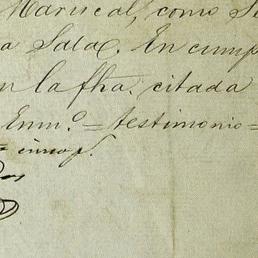 Mariscal, como Se
a Sala. En cump
n la fha. citada
Enmº = testimonio =